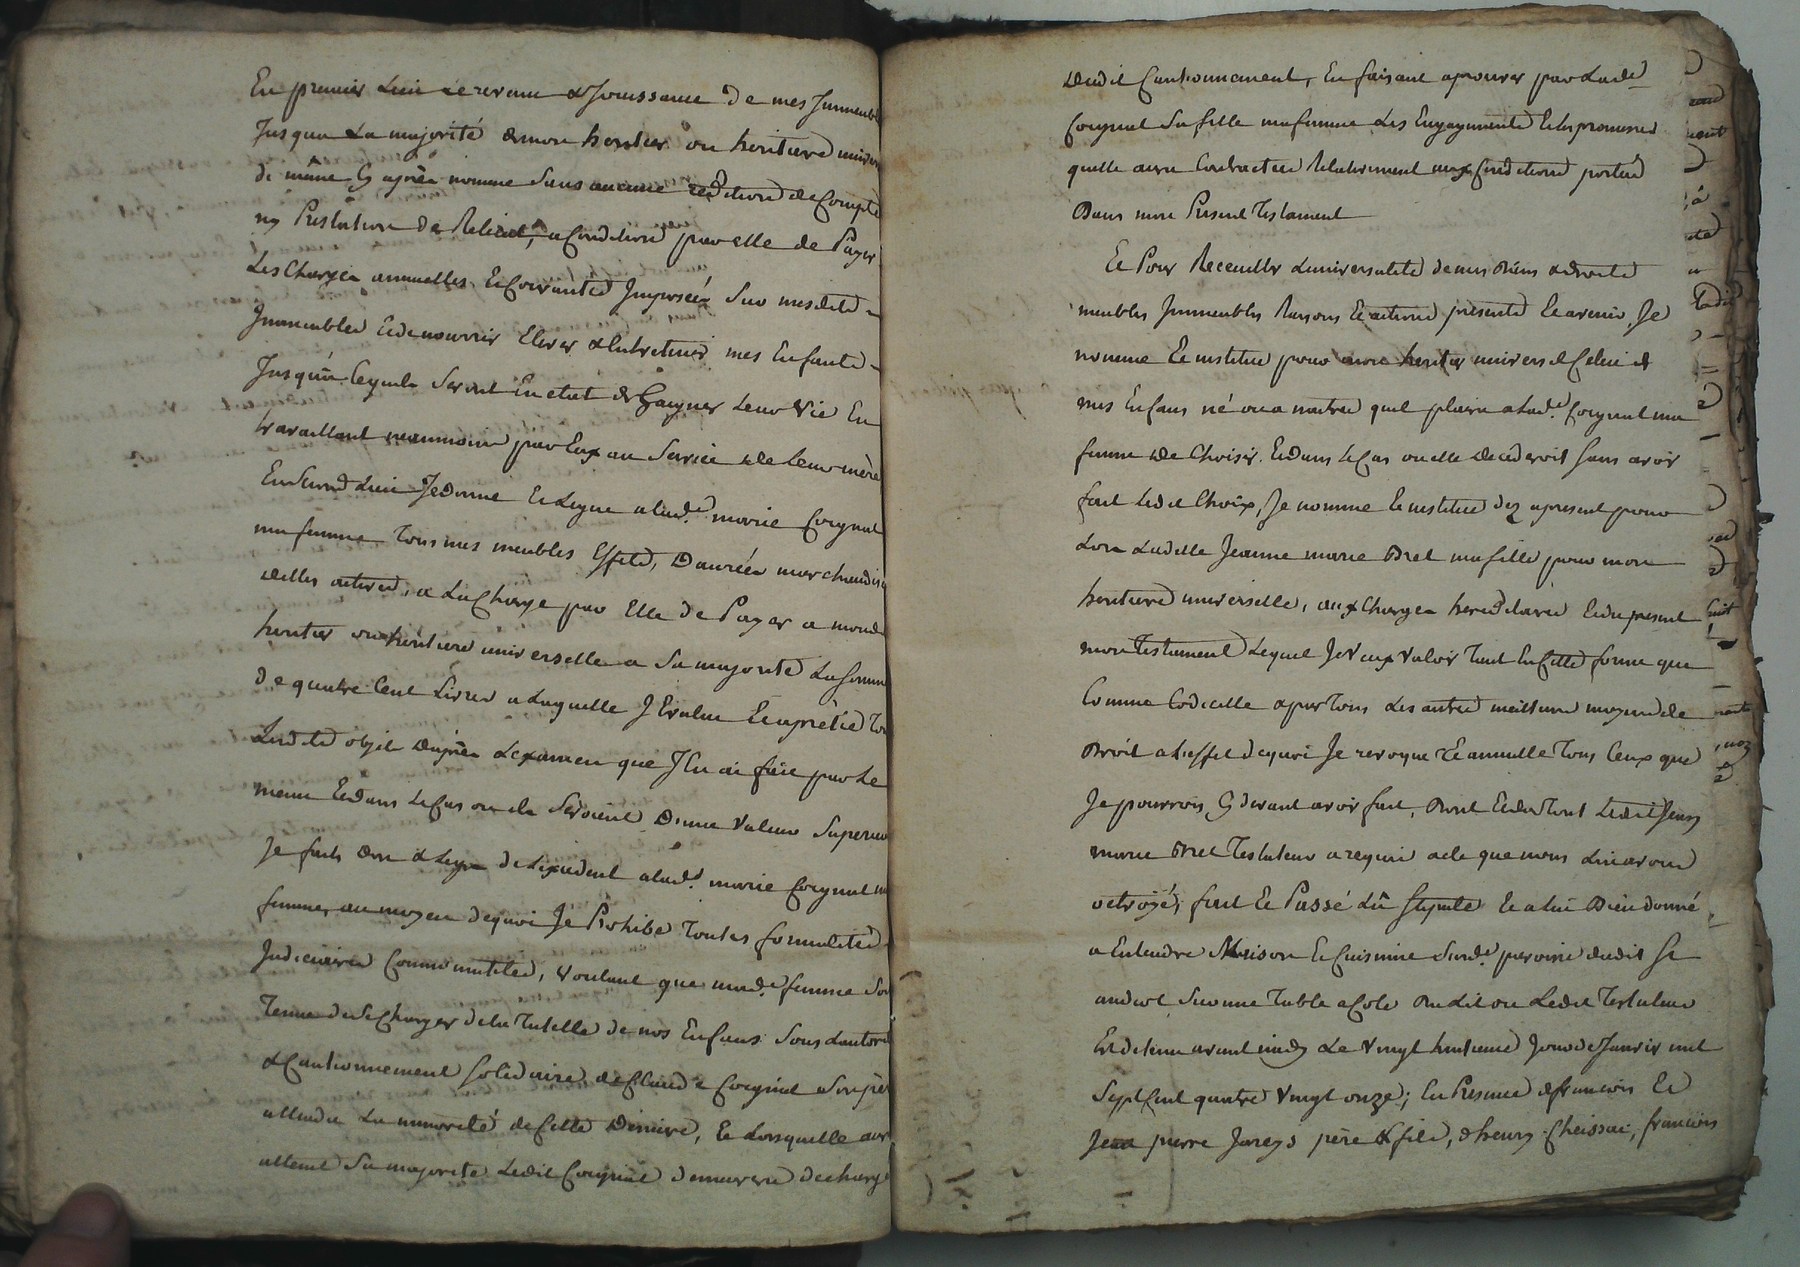 En premier Lieu Le revenu & Jouissance de mes Immeubl
Jusqua La majorité de mon heritier ou heritiere
di même Cy après nommé Sans aucune redition de Compte
ny Prestation de Relicat, a Condition par elle de Payer
Les Charges annuelles Et Courantes Imposées Sur mesdits
Immeubles Et de nourrir Elever & Entretenir mes Enfants
Jusqu'à Cequils Seront En etat de Gagner Leur vie En
travaillant neanmoins par Eux au Service de Leur mère
En Second Lieu Je donne Et Legue a Lad.e marie Coignet
ma femme Tous mes meubles Effets, Danrées marchandis
dettes actives, a La Charge par Elle de Payer a mond
heritier ou heritiere universelle a Sa majorité La Somme
de quatre Cent Livres a Laquelle J'Evalue Et aprétie To
Lesdits objets d'après L'examen que J'En ai fait par Le
menu Et dans Le Cas ou ils Seroient D'une valeur Superieu
Je fais don & Legs de L'exedent a Lad.e marie Coignet m
femme, au moyen dequoi Je Prohibe Toutes formalités
Judiciaires Comme inutiles, voulant que mad.e femme Soit
Tenue de Se Charger de La Tutelle de nos Enfans Sous L'autori
& Cautionnement Solidaire de Claude Coignet Son père
attendu La minorité de Cette Dernière, Et Lorsquelle aur
atteint Sa majorité Ledit Coignet demeurera decharg
dudit Cautionnement, En faisant aprouver par Lade
Coignet Sa fille ma femme Les Engagements Et Les promesses
quelle aura Contractées Relativement aux Conditions portées
Dans mon Present Testament
Et Pour Receuillir L'universalité de mes Biens & droits
meubles Immeubles Raisons Et actions presents Et avenir, Je
nomme Et institue pour mon heritier universel Celui de
mes Enfans né ou a naitre quil plaira a Lad.e Coignet ma
femme de Choisir. Et dans Le Cas ou elle decederoit Sans avoir
fait Ledit Choix, Je nomme Et institue dez apresent pour
Lors Ladite Jeanne marie Bret ma fille pour mon
heritiere universelle, aux Charges hereditaires Et du present
mon Testament Lequel Je veux valoir Tant En Cette forme que
Comme Codicille & par Tous Les autres meilleurs moyens de
Droit a L'effet dequoi Je revoque Et annulle Tous Ceux que
Je pourrois Cy devant avoir fait, Dont Et du Tout Ledit Jean
marie Bret Testateur a requis acte que nous Lui avons
octroyé, fait Et Passé Lû Stipulé Et a Lui Bien donné
a Entendre Maison Et Cuisine Sud.e paroisse dudit St
andeol Sur une Table a Coté du Lit ou Ledit Testateur
Est detenu avant midy Le vingt huitieme Jour de Janvier mil
Sept Cent quatre vingt onze; En Presence de francois Et
Jean pierre Jareys père & fils, henry Cheissac, francois